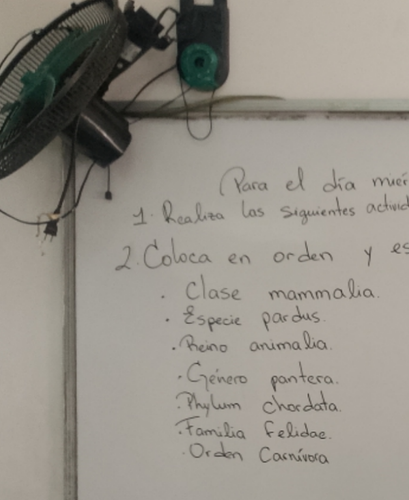 Para el día
1. Realiza las siguientes
2. Coloca en orden y
· Clase mammalia.
· Especie pardus.
· Reino animalia.
· Género pantera.
· Phylum chordata.
· Familia Felidae.
· Orden Carnívora